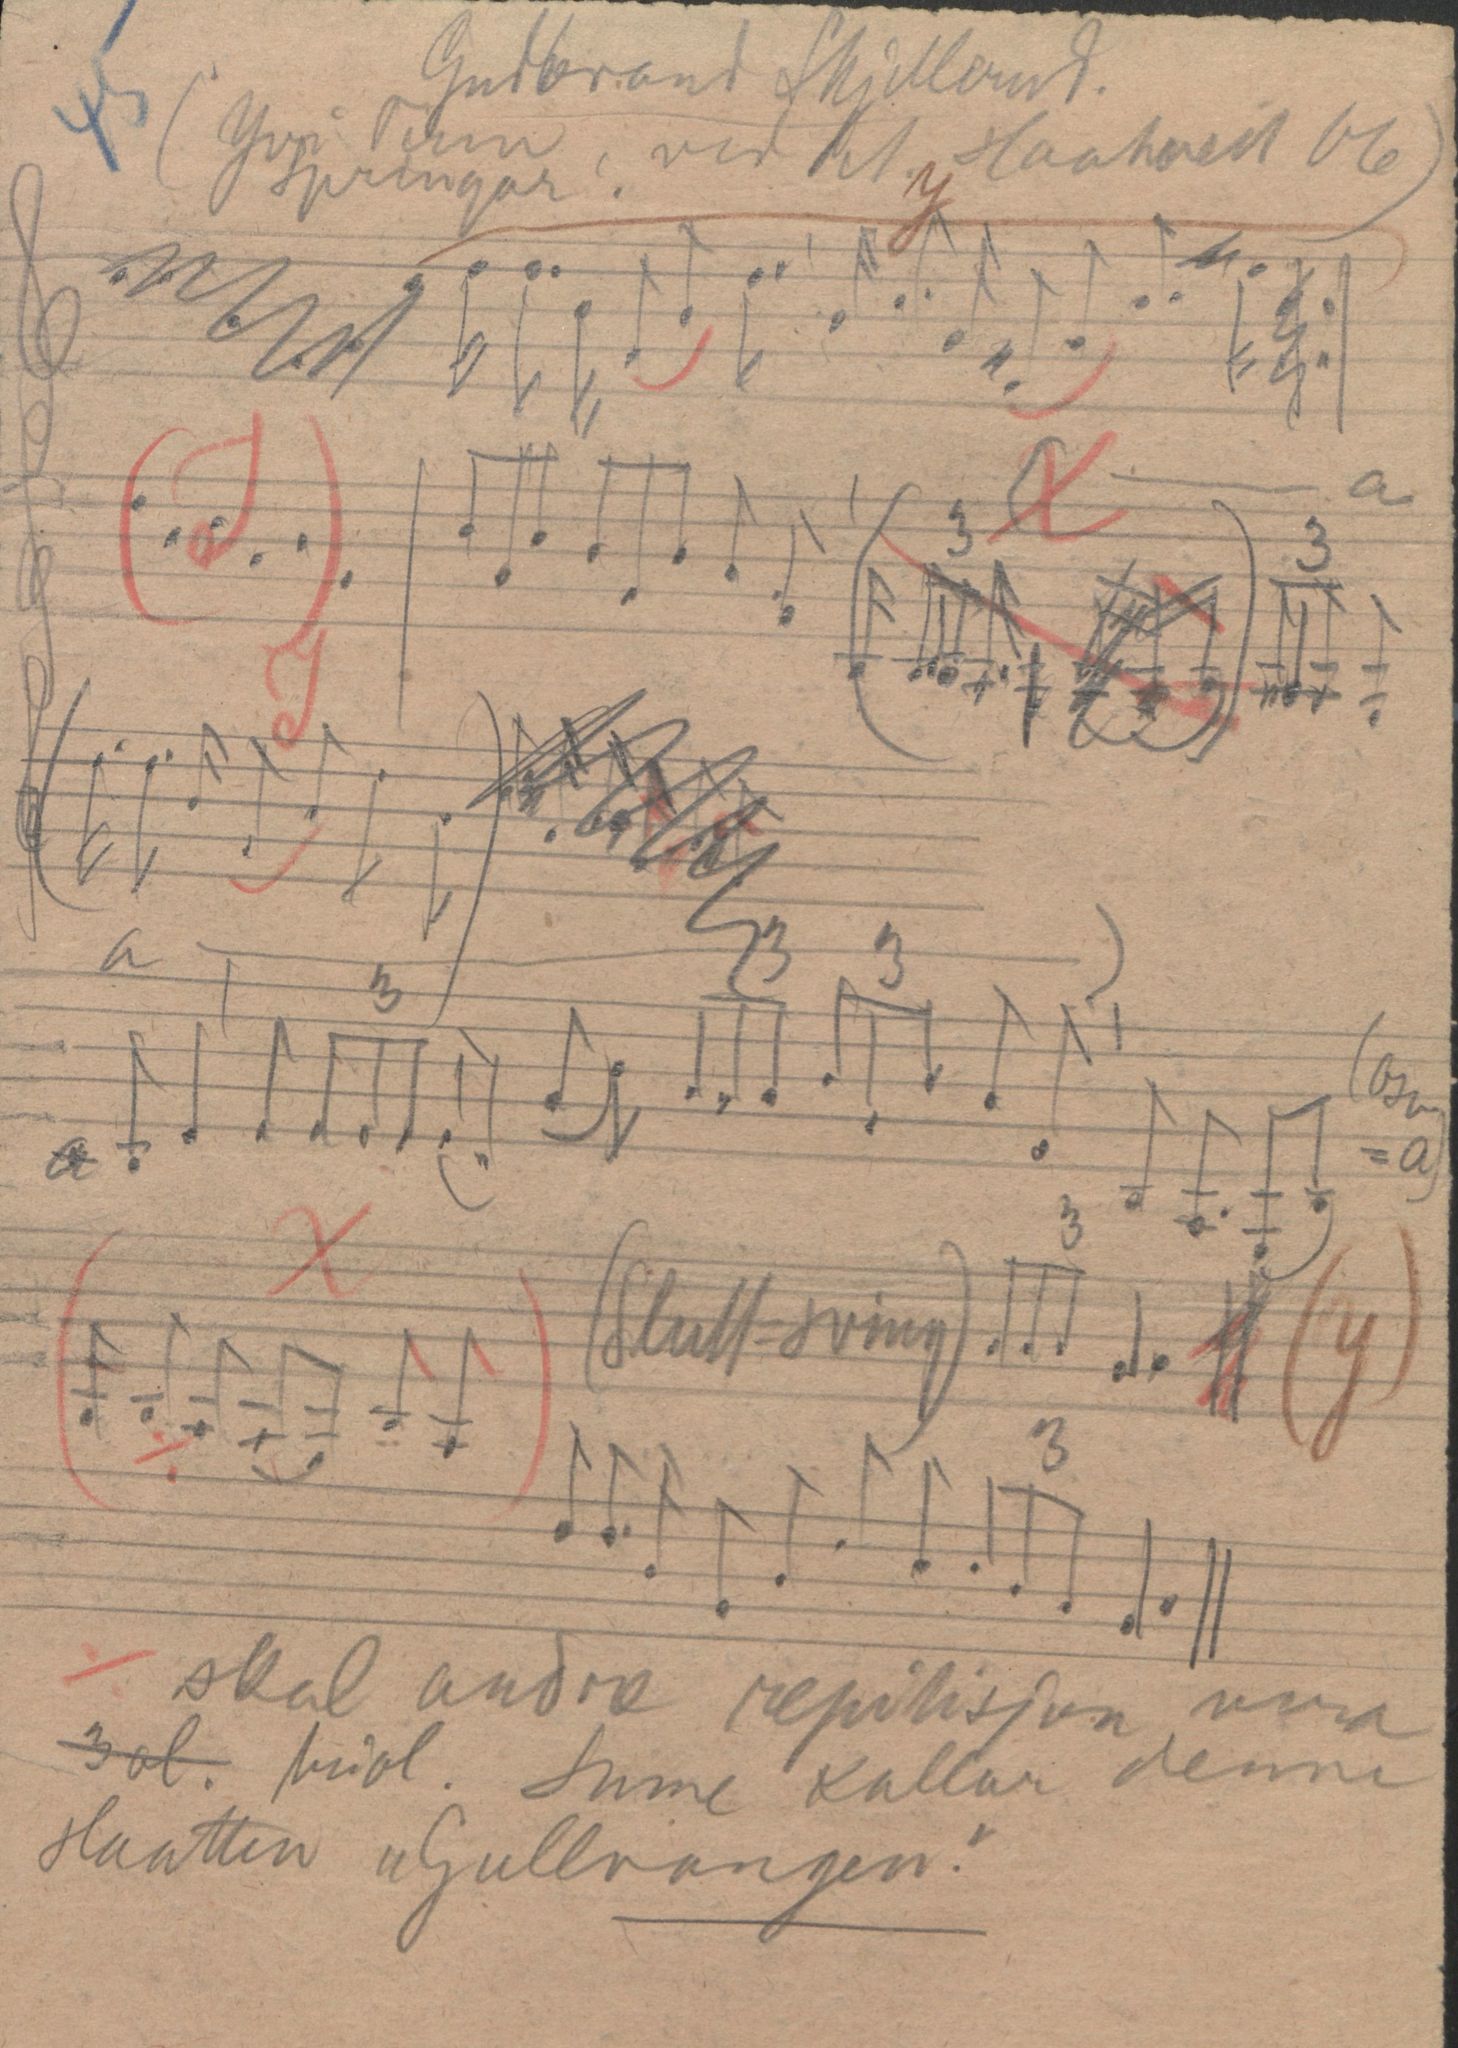 45
Gudbrand Skjellerud.
(Yvi Tinn
springar, ved Kl. Haaheit 06)
y
X a
3 3
y
a 3 3 3
a
(osv.
= a)
X (Slutt-sving) 3 (y)
3
÷ skal andre repitisjon vera
3 ol. triol. Sume kallar denne
slaatten "Gullvangen".